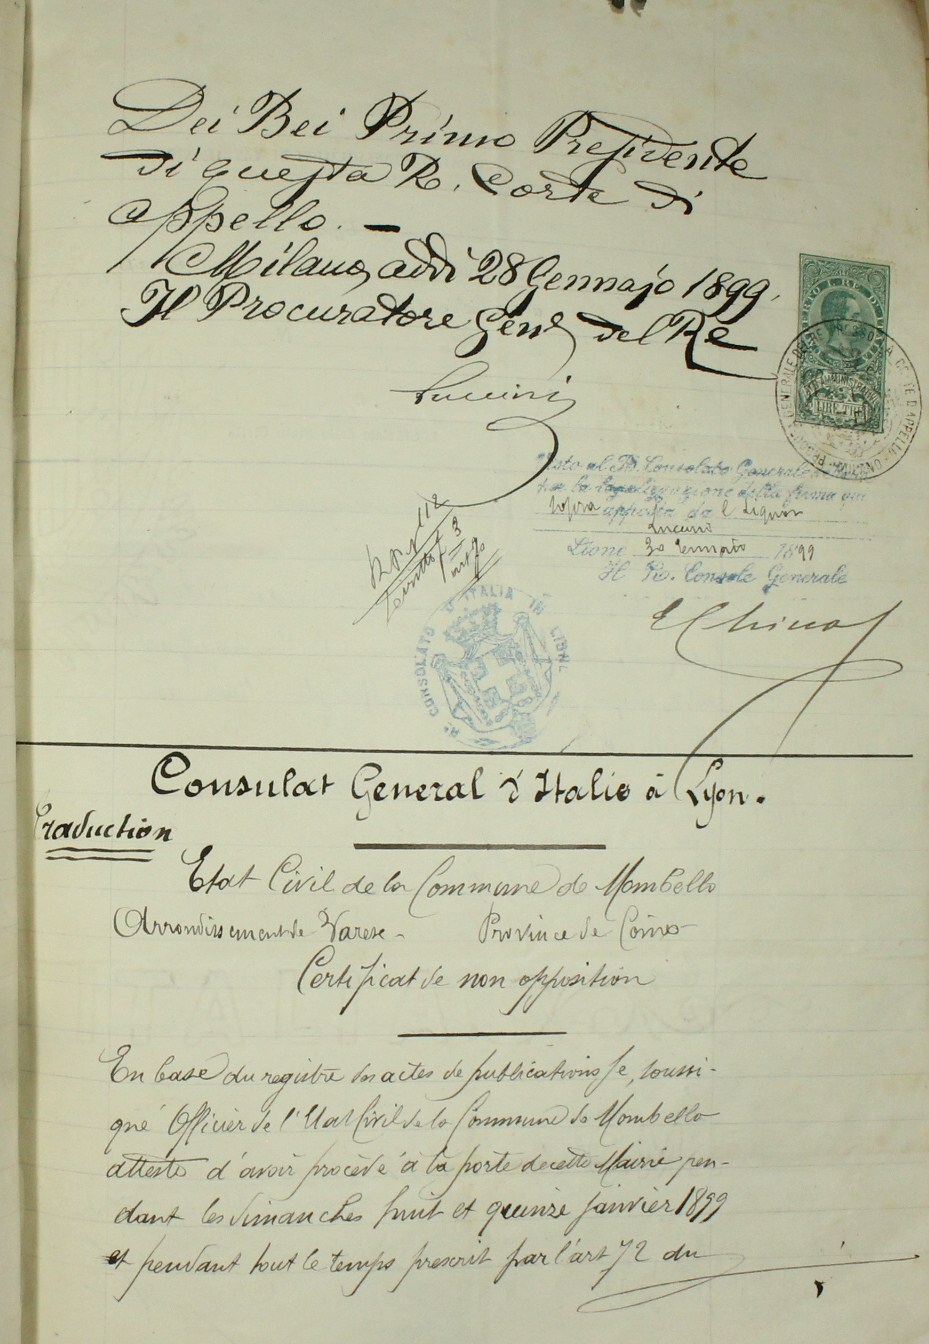 Dei Bei Primo Presidente
di questa R. Corte di
Appello. —
Milano, addì 28 Gennajo 1899.
Il Procuratore Gen. del Re
UMBERTO I. RE D'ITALIA
LIRE TRE
GENERALE DEL RE CORTE D'APPELLO
Visto al R. Consolato Generale
per la legalizzazione della firma qui
sopra apposta da l Signor
Lione 30 Gennaio 1899
Il R. Console Generale
R. CONSOLATO D'ITALIA IN LIONE
Consulat General d'Italie à Lyon.
Traduction
Etat Civil de la Commune de Mombello
Arrondissement de Varese - Province de Como
Certificat de non opposition
En base du registre des actes de publications Je, soussi-
gné Officier de l'Etat Civil de la Commune de Mombello
atteste d'avoir procédé à la porte de cette Mairie pen-
dant les dimanches huit et quinze janvier 1899
et pendant tout le temps prescrit par l'art 72 du